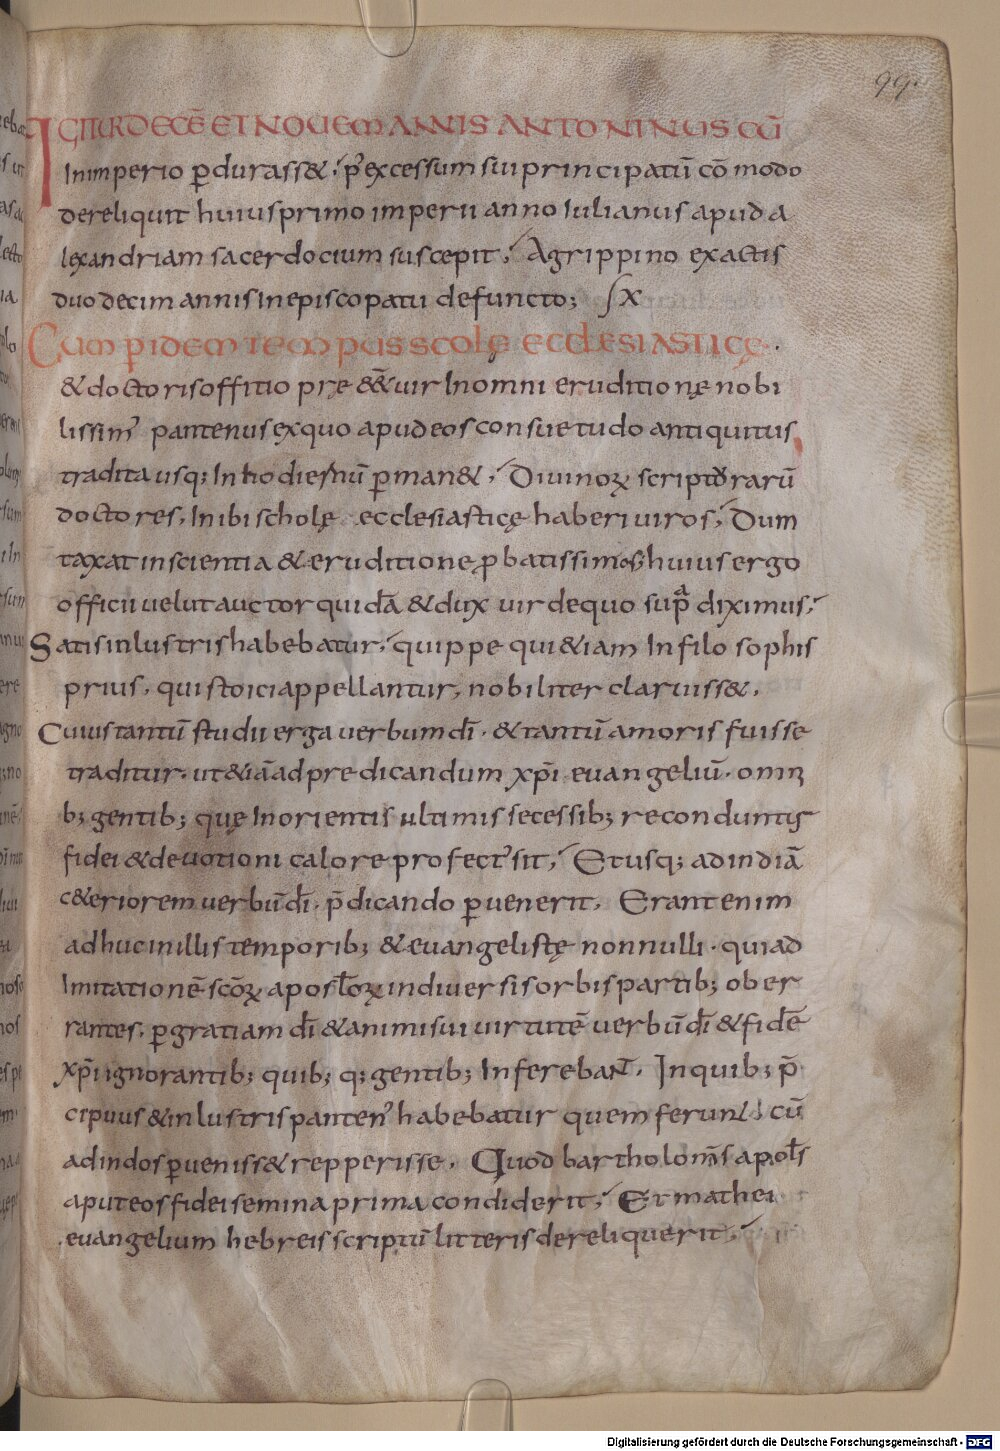 99.
IGITUR DECĒ ET NOUEM ANNIS ANTONINUS CŪ
In imperio ꝑdurass&; p᾽ excessum sui principatū cōmodo
dereliquit huius primo imperii anno iulianus apud a
lexandriam sacerdocium suscepit; Agrippino exactis
duodecim annis in episcopatu defuncto; ſX
Cum ꝑ idem tempus scolę ecclesiasticę.
& doctoris offitio pręe&̄ uir In omni eruditionę nobi
lissim᾽ pantenus ex quo apud eos consuetudo antiquitus
tradita usq; In hodiernū ꝑman&; Diuinoꝝ scripturarū
doctores, In ibi scholę ecclesiasticę haberi uiros; Dum
taxat in scientia & eruditione ꝓbatissimos; huius ergo
officii uelut auctor quidā & dux uir de quo sup̄ᵃ diximus;
Satis inlustris habebatur; quippe qui &iam In filosophis
prius, qui stoici appellantur, nobiliter claruiss&.
Cuius tantū studii erga uerbum dī. & tantū amoris fuisse
traditur. ut &iā ad predicandum xp̄i euangeliū. omni
b; gentib; quę In orientis ultimis secessib; reconduntis
fidei & deuotioni calore profect᾽ sit; Et usq; ad indiā
c&eriorem uerbū dī. p̄dicando ꝑuenerit. Erant enim
adhuc in illis temporib; & euangelistę nonnulli. qui ad
Imitationē sc̄oꝝ apostl̄oꝝ in diuersis orbis partib; ober
rantes. ꝑ gratiam dī & animi sui uirtutē uerbū dī & fidē
xp̄i ignorantib; quib; q; gentib; Inferebant. In quib; p̄
cipuus & inlustris panten᾽ habebatur quem ferunt cū
ad indos ꝑueniss& repperisse. Quod bartholom̄s apostl̄s
aput eos fidei semina prima condiderit; Et mathei
euangelium hebreis scriptū litteris dereliquerit;
Digitalisierung gefördert durch die Deutsche Forschungsgemeinschaft - DFG